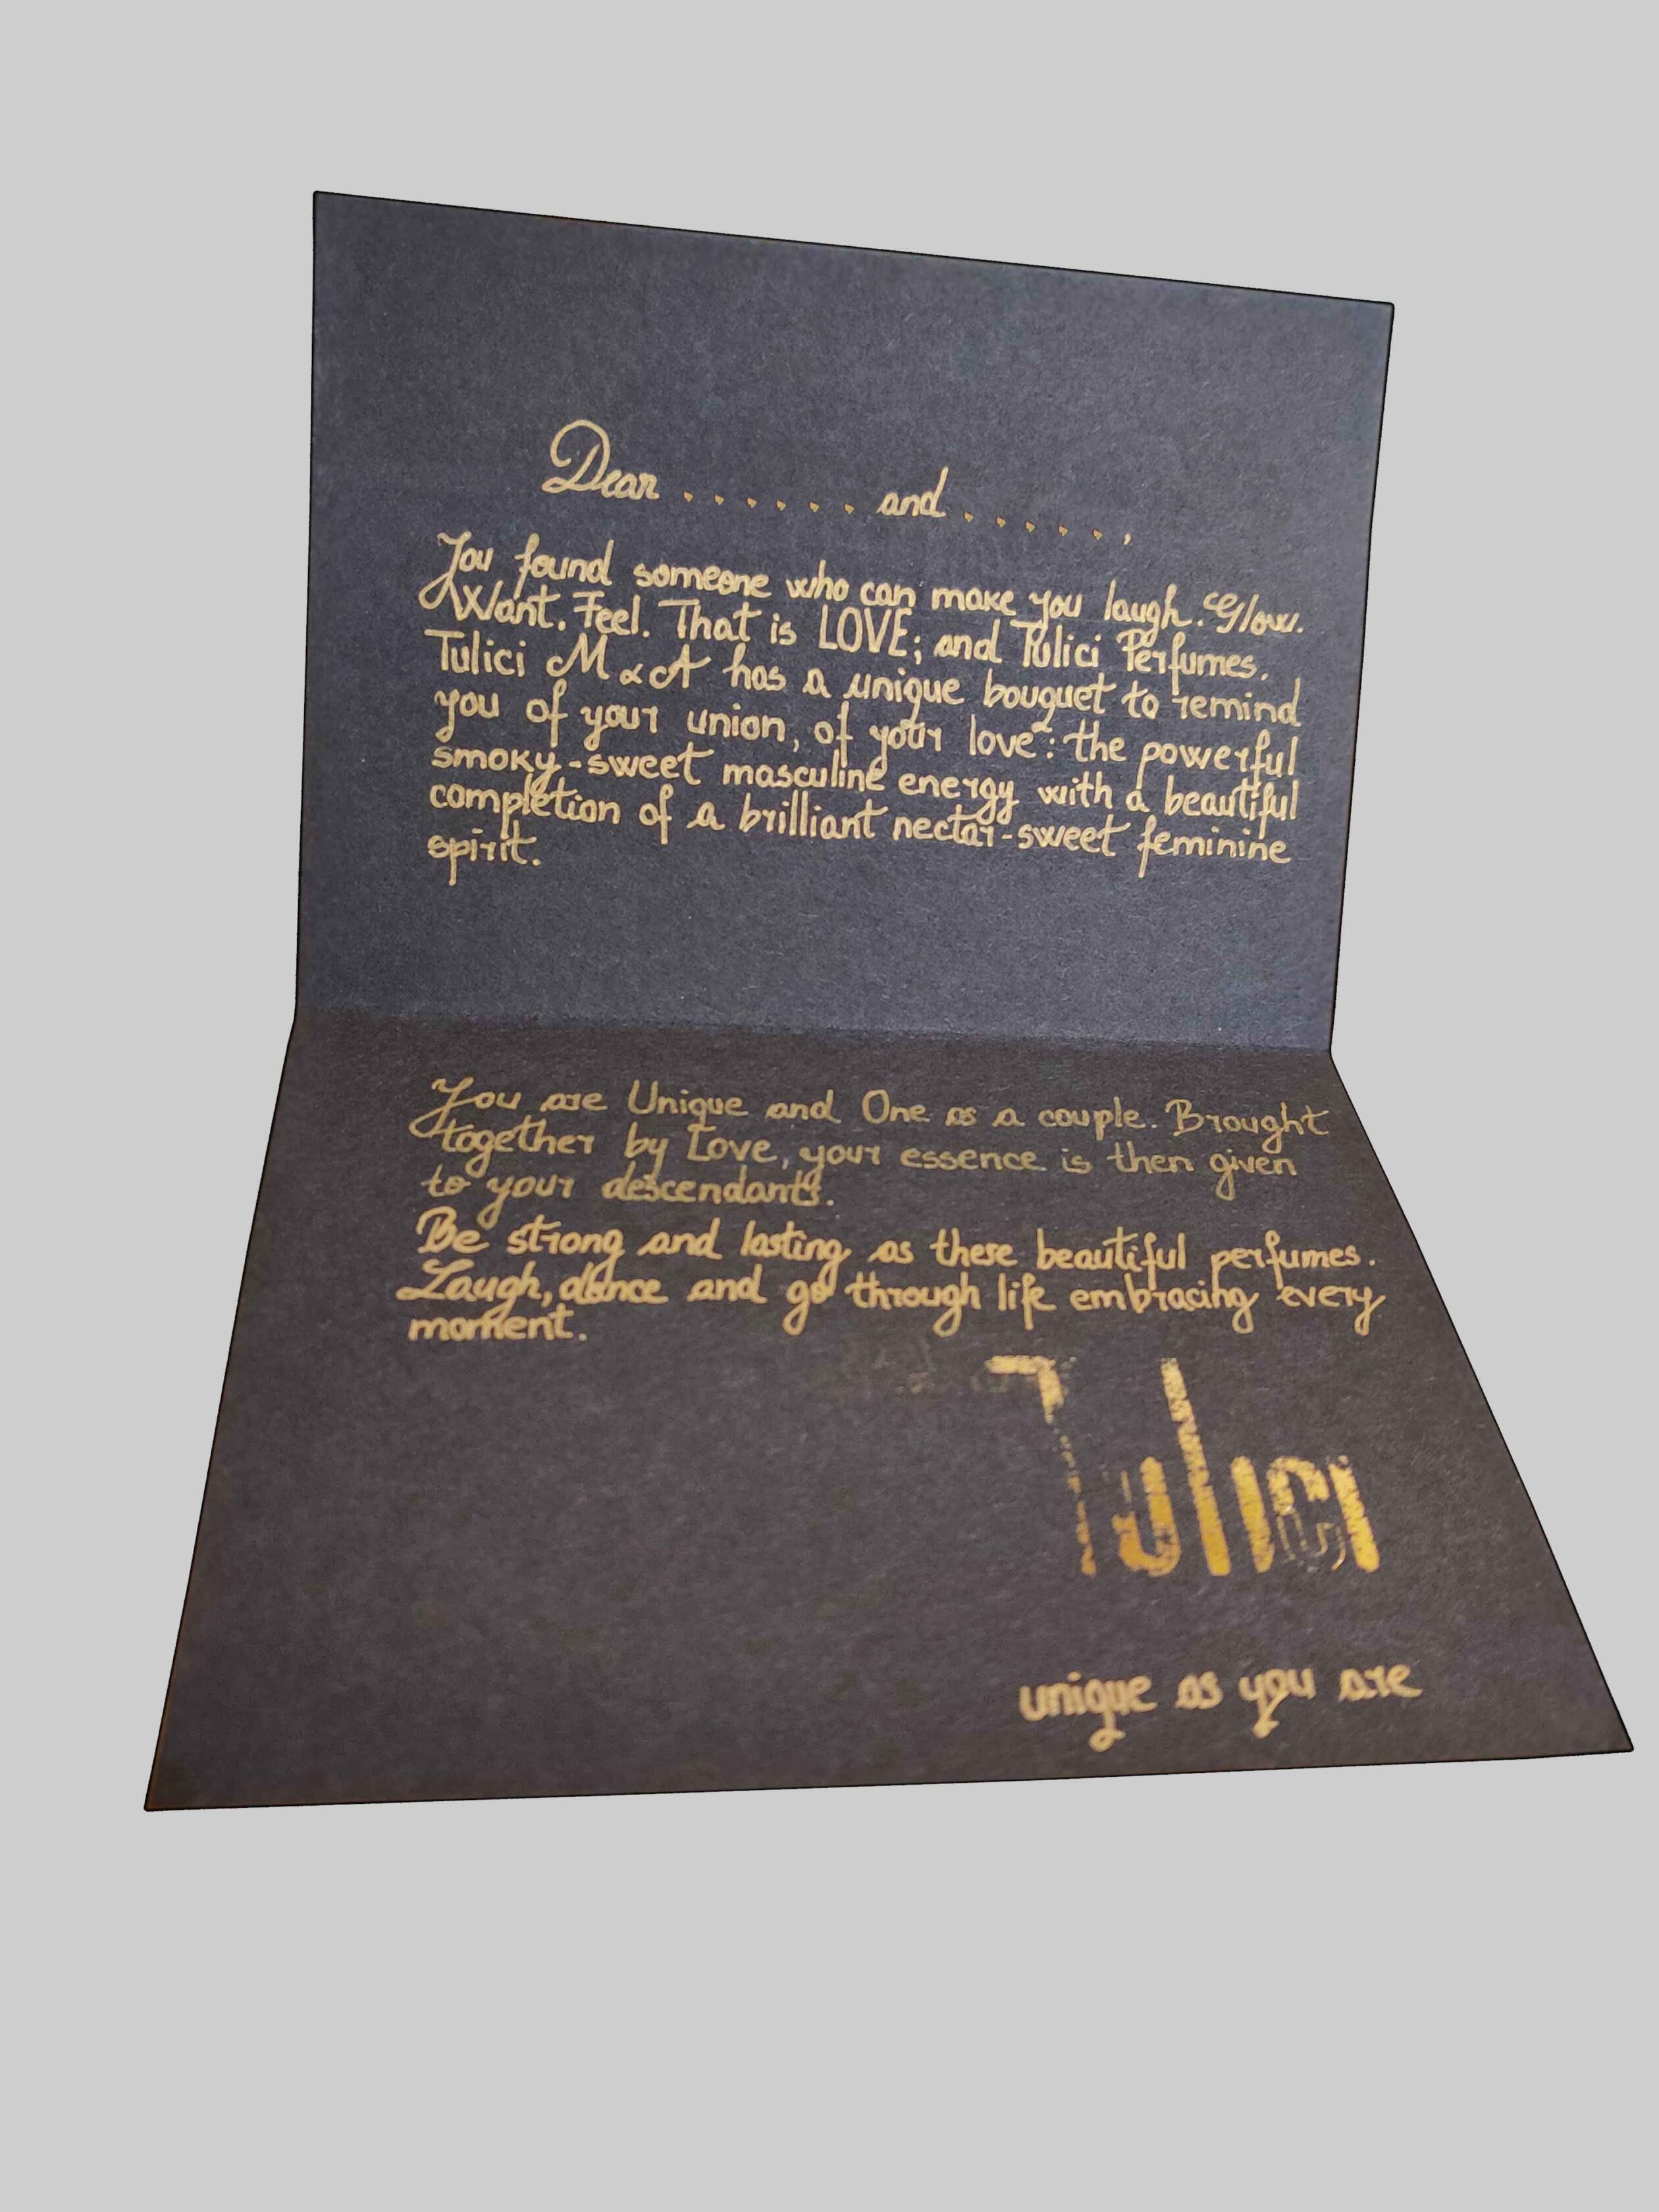 Dear . . . . . . and . . . . . ,
You found someone who can make you laugh. Glow.
Want. Feel. That is LOVE; and Tulici Perfumes.
Tulici M & A has a unique bouquet to remind
you of your union, of your love: the powerful
smoky-sweet masculine energy with a beautiful
completion of a brilliant nectar-sweet feminine
spirit.
You are Unique and One as a couple. Brought
together by Love, your essence is then given
to your descendants.
Be strong and lasting as these beautiful perfumes.
Laugh, dance and go through life embracing every
moment.
Tulici
unique as you are